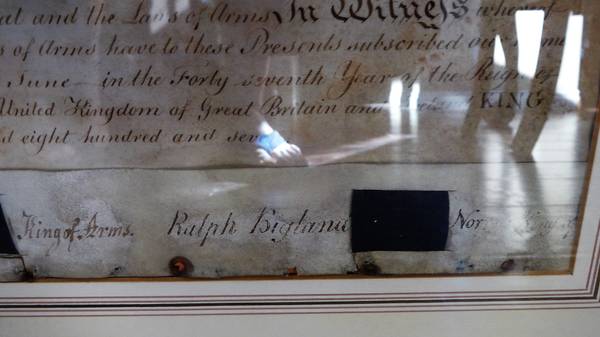 and the Laws of Arms In Witness whereof
s of Arms have to these Presents subscribed our
June in the Forty seventh Year of the Reign of
United Kingdom of Great Britain and KING
eight hundred and seve
King of Arms. Ralph Bigland Nor